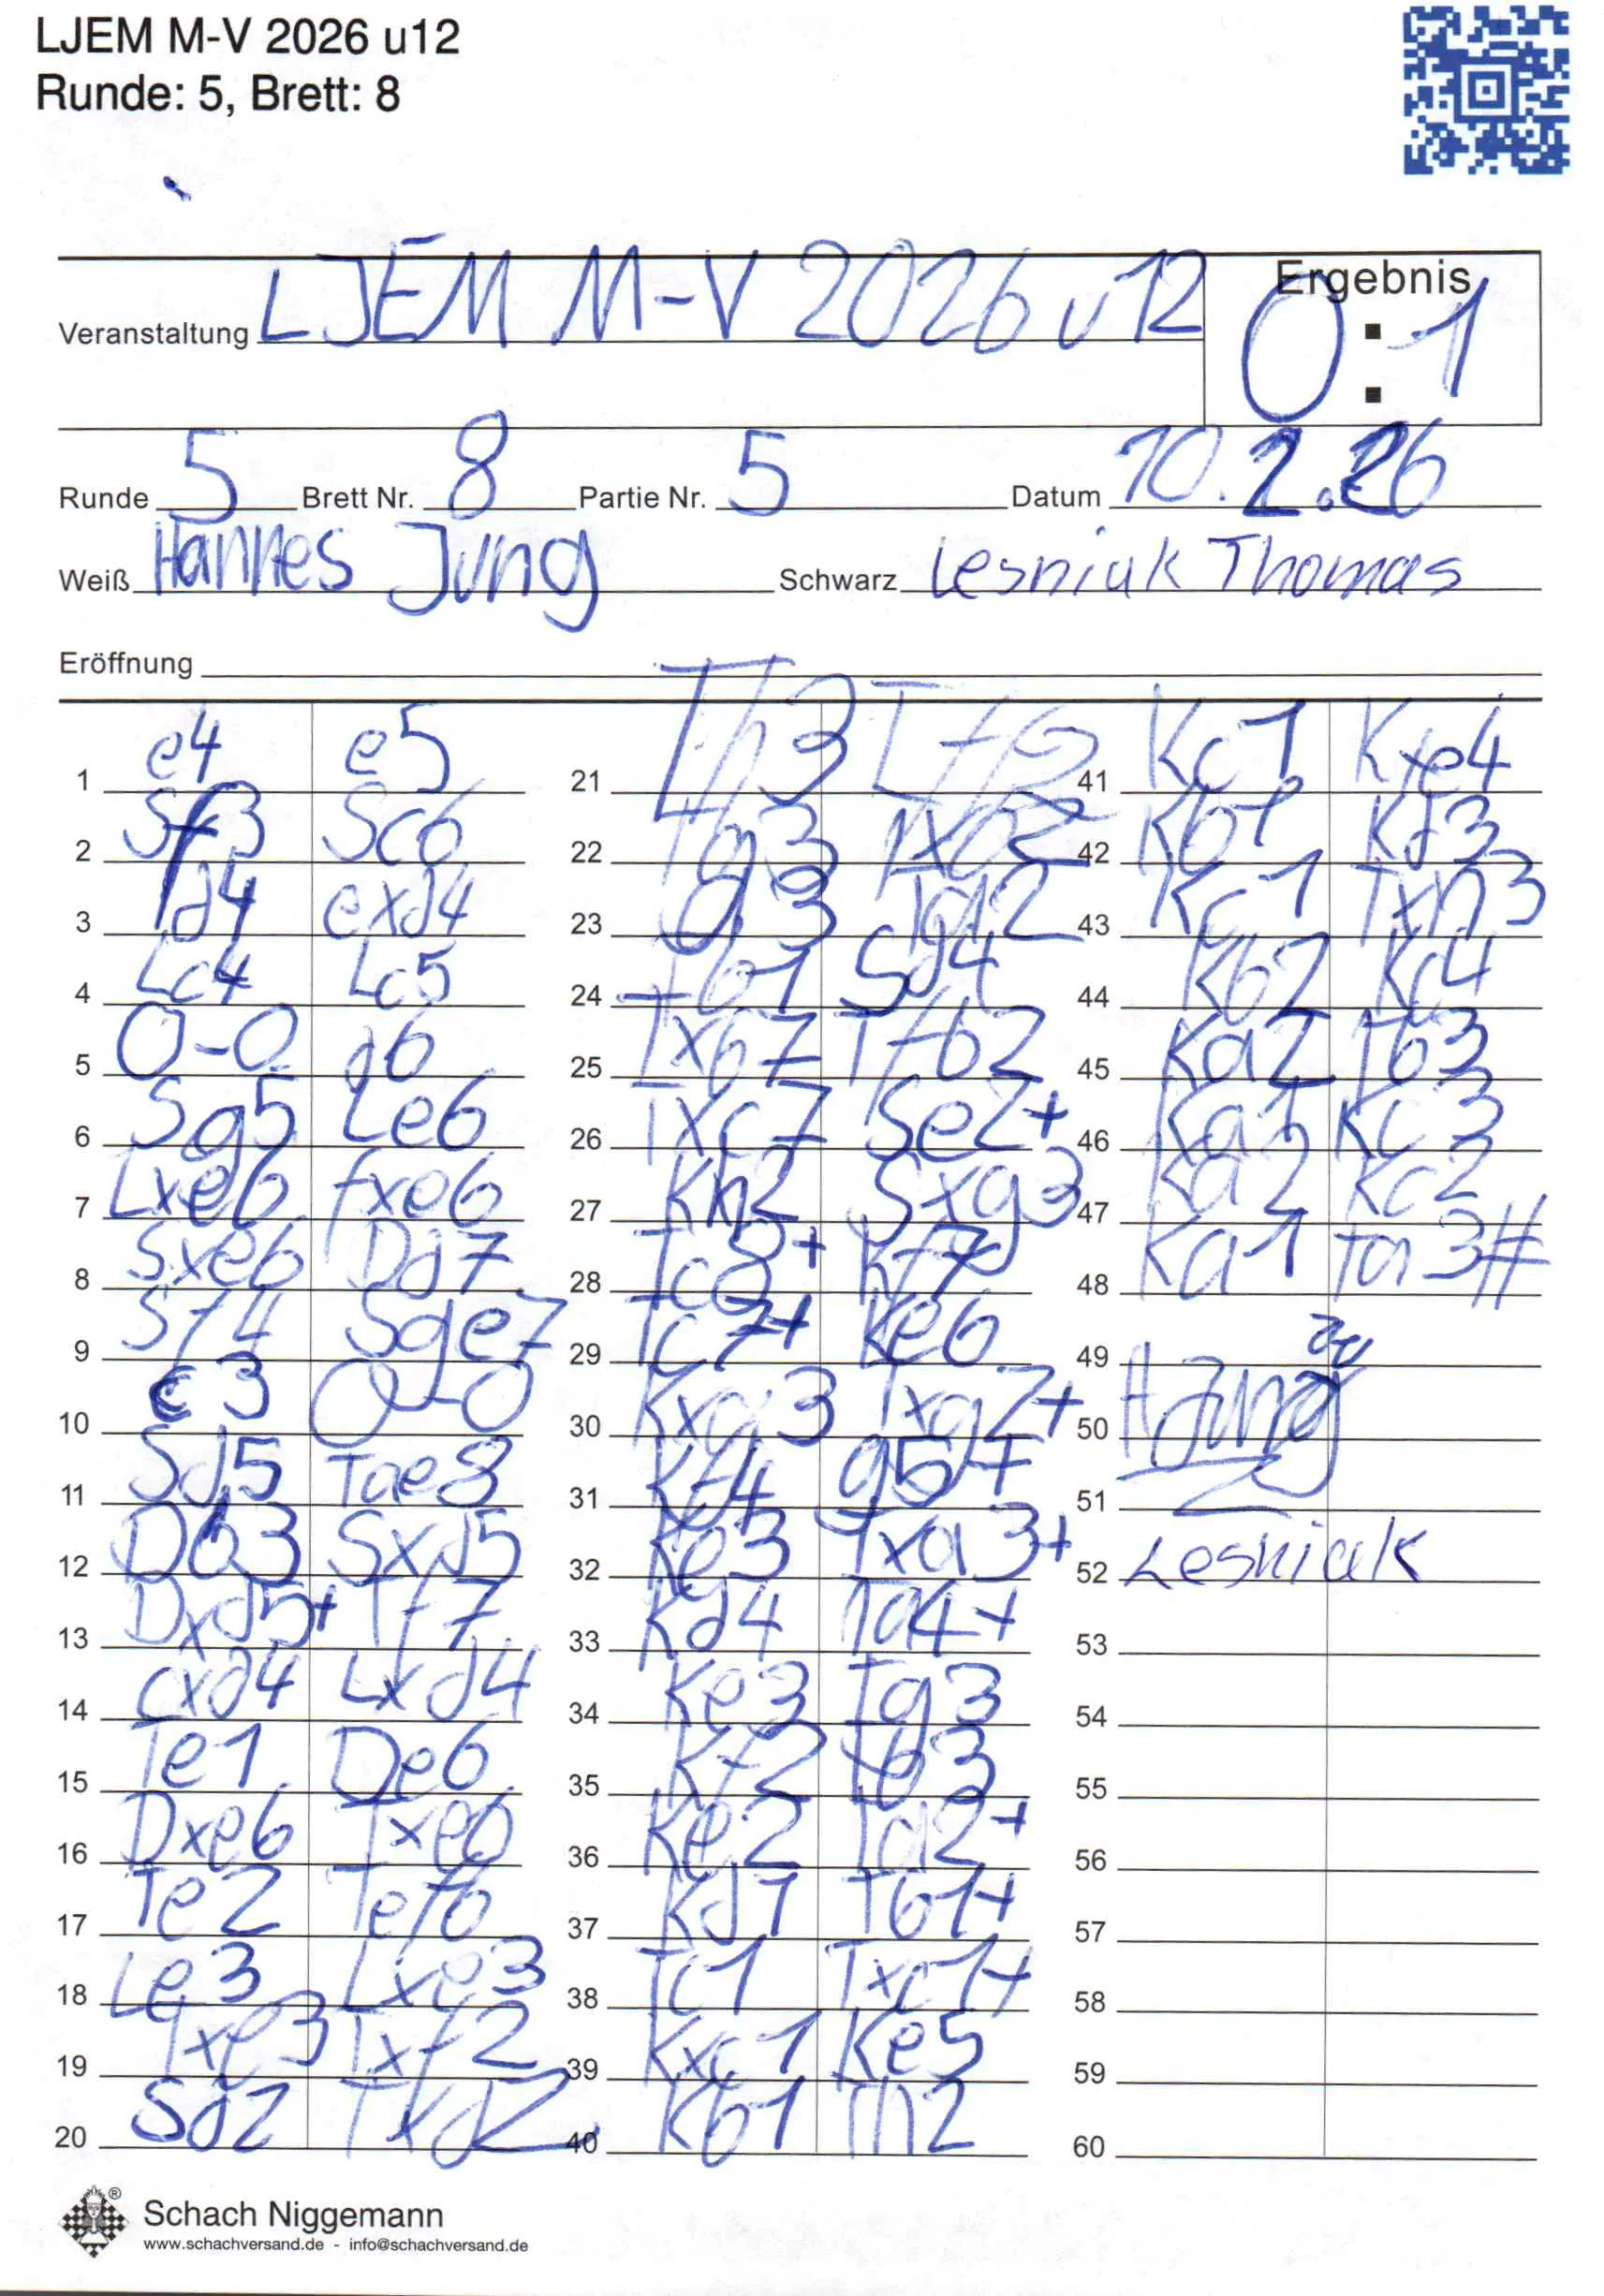 LJEM M-V 2026 u12
Runde: 5, Brett: 8
Veranstaltung LJEM M-V 2026 u12 Ergebnis 0:1
Runde 5 Brett Nr. 8 Partie Nr. 5 Datum 10.2.26
Weiß Hannes Jung Schwarz Lesniak Thomas
Eröffnung
1 e4 e5
2 Sf3 Sc6
3 d4 exd4
4 Lc4 Lc5
5 O-O d6
6 Sg5 Le6
7 Lxe6 fxe6
8 Sxe6 Dd7
9 Sf4 Sge7
10 c3 O-O
11 Sd5 Tae8
12 Db3 Sxd5
13 Dxd5+ Tf7
14 cxd4 Lxd4
15 Te1 De6
16 Dxe6 Txe6
17 Te2 Tef6
18 Le3 Lxe3
19 Txe3 Txf2
20 Sd2 Txd2
21 Th3 Tf6
22 Tg3 Txb2
23 a3
24 Tb1 Sd4
25 Txb7 Tfb2
26 Txc7 Se2+
27 Kh2 Sxg3
28 Tc8+ Kf7
29 Tc7+ Ke6
30 Kxg3 Txg2+
31 Kf4 g5+
32 Ke3 Txa3+
33 Kd4 Ta4+
34 Ke3 Tg3
35 Kf2 Tb3
36 Ke2 Ta2+
37 Kd1 Tb1+
38 Tc1 Txc1+
39 Kxc1 Ke5
40 Kb1 Th2
41 Kc1 Kxe4
42 Kb1 Kd3
43 Kc1 Txh3
44 Kb2 Kc4
45 Ka2 Tb3
46 Ka1 Kc3
47 Ka2 Kc2
48 Ka1 Ta3#
49
50 H Jung
51
52 Lesniak
53
54
55
56
57
58
59
60
Schach Niggemann
www.schachversand.de - info@schachversand.de